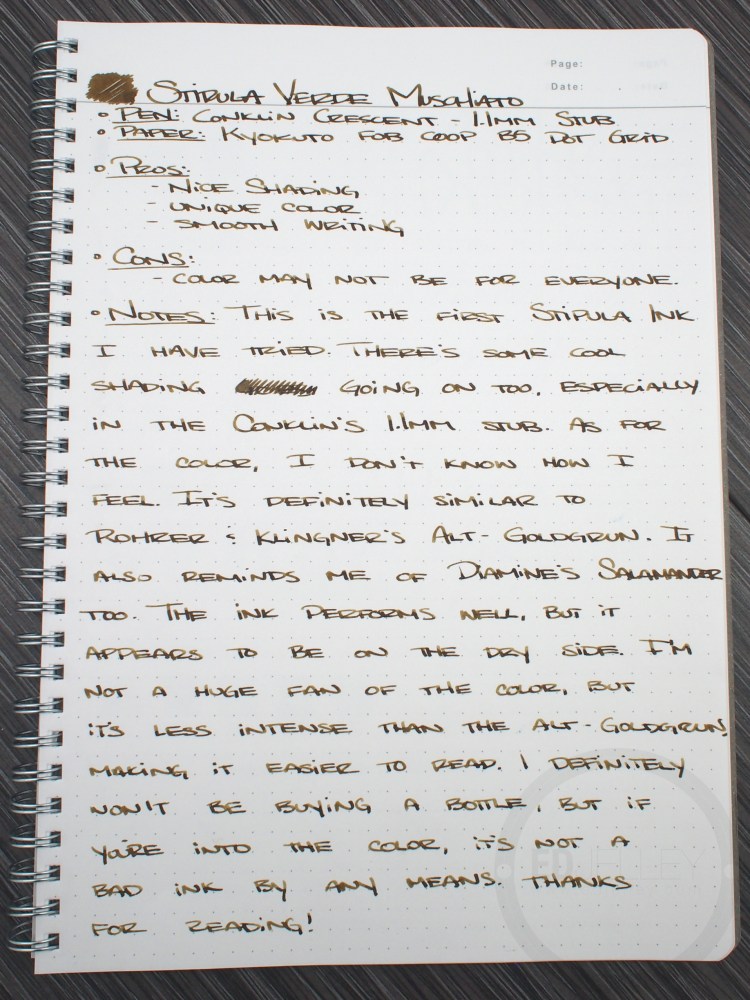 Page:
Date:
Stipula Verde Muschiato
• Pen: Conklin Crescent - 1.1mm Stub
• Paper: Kyokuto FOB COOP B5 Dot Grid
• Pros:
- Nice Shading
- Unique Color
- Smooth Writing
• Cons:
- Color may not be for everyone.
• Notes: This is the first Stipula Ink
I have tried. There's some cool
shading going on too, especially
in the Conklin's 1.1mm stub. As for
the color, I don't know how I
feel. It's definitely similar to
Rohrer & Klingner's Alt-Goldgrun. It
also reminds me of Diamine's Salamander
too. The ink performs well, but it
appears to be on the dry side. I'm
not a huge fan of the color, but
it's less intense than the Alt-Goldgrun,
making it easier to read. I definitely
won't be buying a bottle, but if
you're into the color, it's not a
bad ink by any means. Thanks
for reading!
ED JELLEY